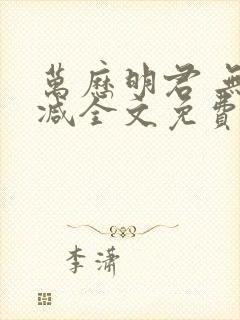 萬歷明君 無
减全文免費
李潇